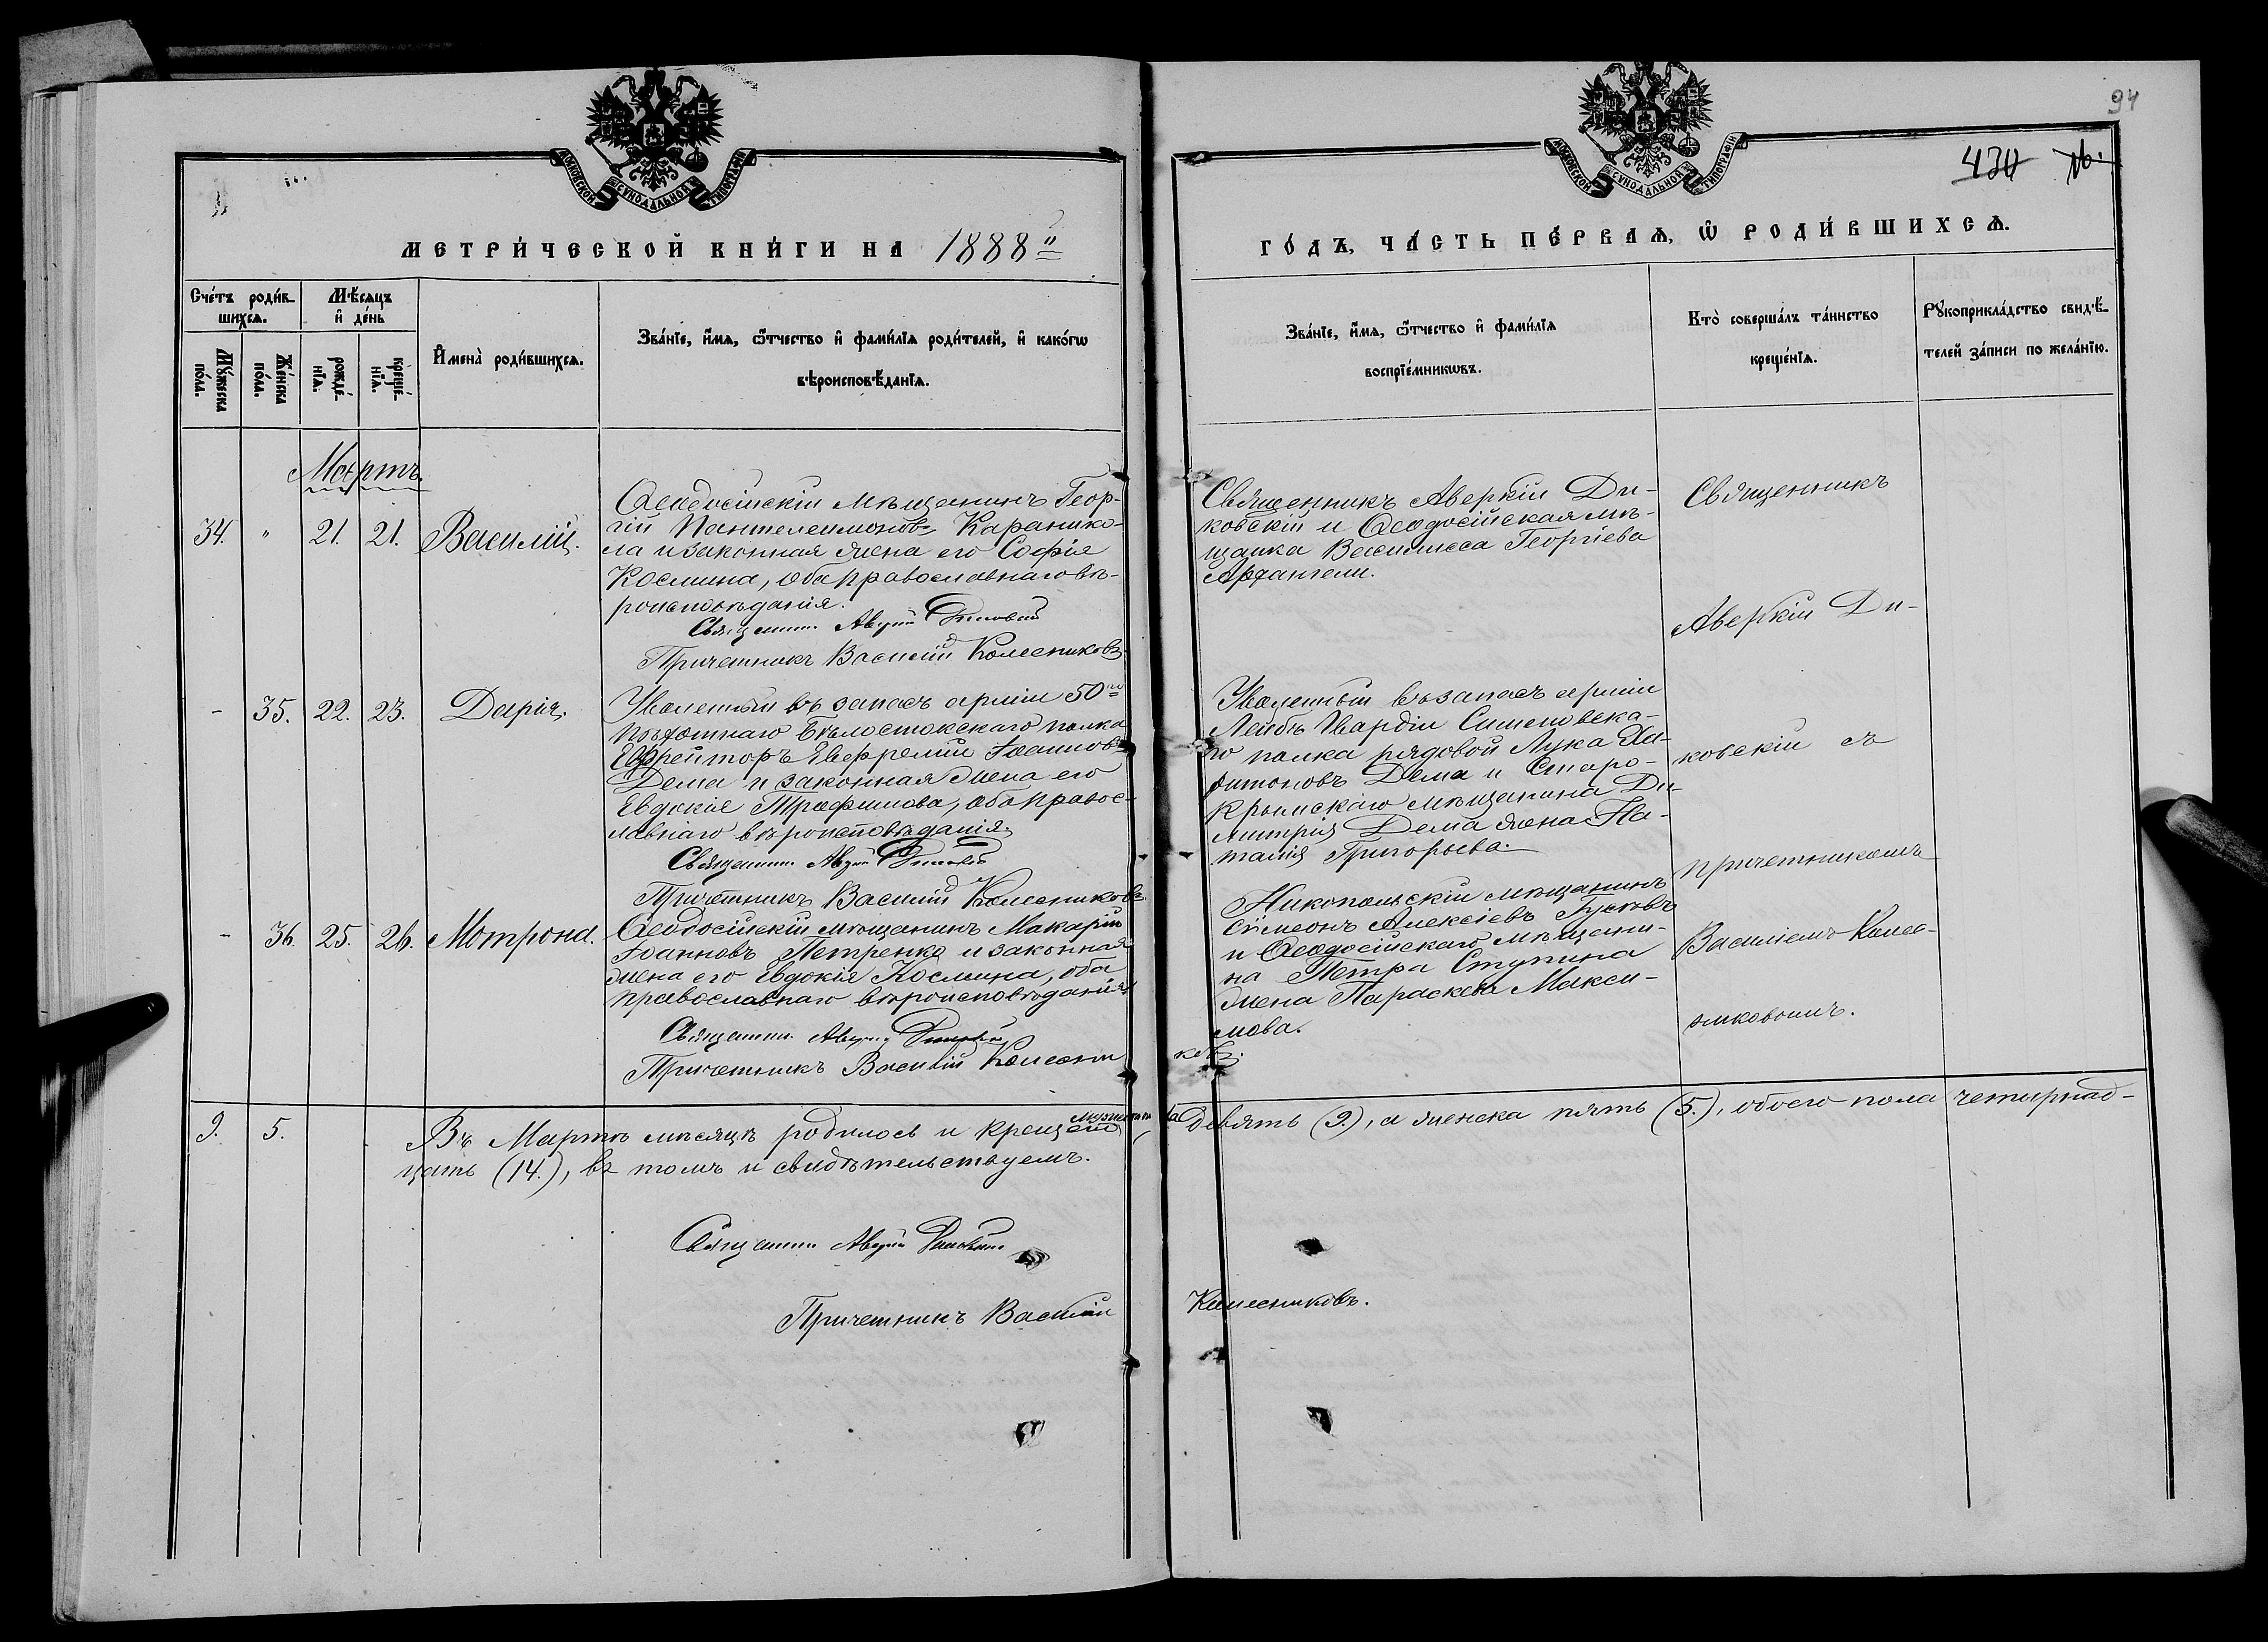 94
430
МОСКОВСКОЙ СѴНОДАЛЬНОЙ ТИПОГРАФІИ
МОСКОВСКОЙ СѴНОДАЛЬНОЙ ТИПОГРАФІИ
МЕТРИ́ЧЕСКОЙ КНИ́ГИ НА 1888
ГО́ДЪ, ЧА́СТЬ ПЕ́РВАѦ, Ѡ РОДИ́ВШИХСѦ.
Сче́тъ роди́в-
шихсѧ.
Мѣ́сѧцъ
и҆ де́нь
Мꙋ́жеска
по́ла.
Же́нска
по́ла.
рожде́-
нїѧ.
креще́-
нїѧ.
И҆мена̀ роди́вшихсѧ.
Зва́нїе, и҆́мѧ, ѻ҆́тчество и҆ фами́лїѧ роди́телей, и҆ како́гѡ
вѣроисповѣ́данїѧ.
Зва́нїе, и҆́мѧ, ѻ҆́тчество и҆ фами́лїѧ
воспрїе́мникѡвъ.
Кто̀ соверша́лъ та́инство
креще́нїѧ.
Рꙋкоприкла́дство свидѣ́-
телей за́писи по жела́нїю.
Мартъ.
34. " 21. 21. Василій.
Ѳеодосійскій мѣщанинъ Геор-
гій Пантелеимоновъ Каранико-
ла и законная жена его Софія
Космина, оба православнаго вѣ-
роисповѣданія.
Священникъ Аверкій Диковскій
Причетникъ Василій Колесниковъ
Священникъ Аверкій Ди-
ковскій и Ѳеодосійская мѣ-
щанка Василисса Георгіева
Арфангели.
- 35. 22. 23. Дарія.
Уволенный въ запасъ арміи 50го
пѣхотнаго Бѣлостокскаго полка
Ефрейторъ Евфремій Іоанновъ
Дема и законная жена его
Евдокія Трофимова, оба правос-
лавнаго вѣроисповѣданія.
Священникъ Аверкій Диковскій
Причетникъ Василій Колесниковъ
Уволенный въ запасъ арміи
Лейбъ Гвардіи Семеновска-
го полка рядовой Лука Ха-
ритоновъ Дема и Старо-
крымскаго мѣщанина Ди-
митрія Дема жена На-
талія Григорьева.
- 36. 25. 26. Мотрона.
Ѳеодосійскій мѣщанинъ Макарій
Іоанновъ Петренко и законная
жена его Евдокія Космина, оба
православнаго вѣроисповѣданія
Священникъ Аверкій Диковскій
Причетникъ Василій Колесни
ковъ.
Никопольскій мѣщанинъ
Сімеонъ Алексіевъ Гусковъ
и Ѳеодосійскаго мѣщани-
на Петра Ступина
жена Параскева Макси-
мова.
Священникъ
Аверкій Ди-
ковскій съ
причетникомъ
Василіемъ Колес-
никовымъ.
9. 5. Въ Мартѣ мѣсяцѣ родилось и крещено мужеска девять (9.), а женска пять (5.), обоего пола четырнад-
цать (14.), въ томъ и свидѣтельствуемъ.
Священникъ Аверкій Диковскій
Причетникъ Василій Колесниковъ.